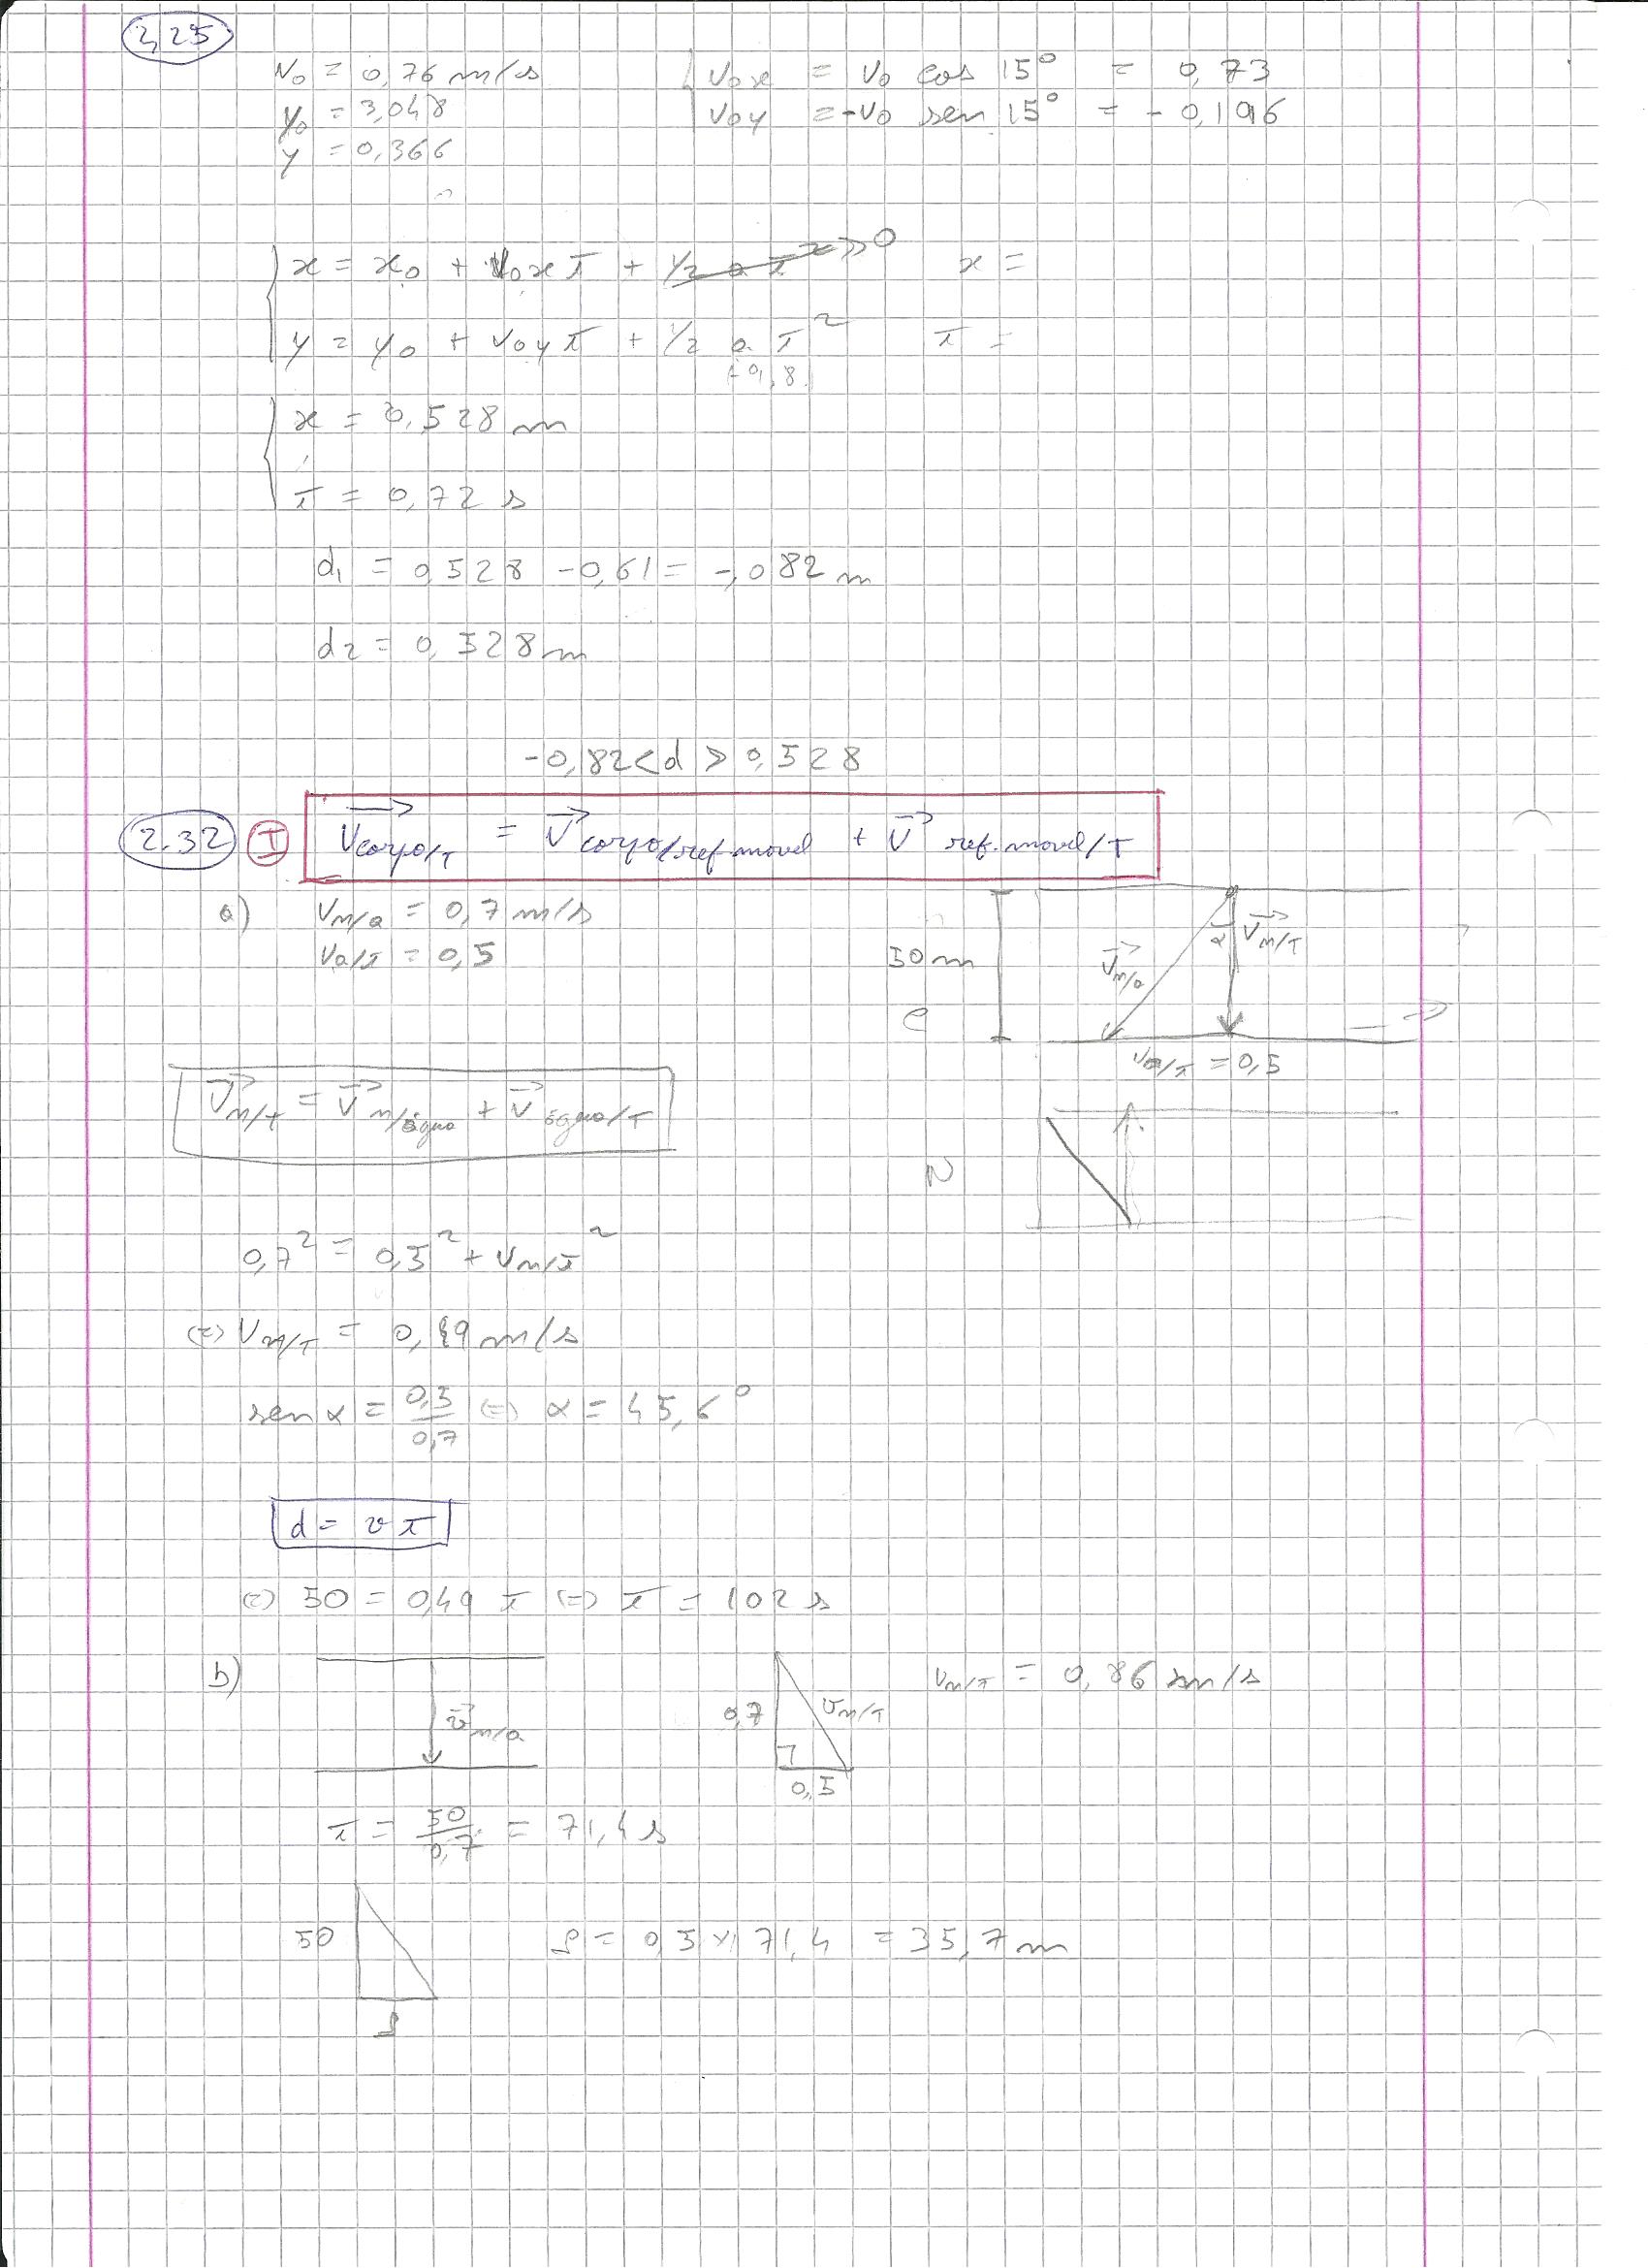 2,25
v0 = 0,76 m/s
y0 = 3,048
y = 0,366
v0x = v0 cos 15° = 0,73
v0y = -v0 sen 15° = -0,196
x = x0 + v0x t + 1/2 a t² → 0
x =
y = y0 + v0y t + 1/2 a t²
(-9,8)
t =
x = 0,528 m
t = 0,72 s
d1 = 0,528 - 0,61 = -,082 m
d2 = 0,528 m
-0,82 < d > 0,528
2.32 I V⃗corpo/T = V⃗corpo/ref.movel + V⃗ ref.movel/T
a) Vn/a = 0,7 m/s
Va/T = 0,5
50 m
V⃗n/a
α
V⃗n/T
Va/T = 0,5
V⃗n/T = V⃗n/água + V⃗água/T
N
0,7² = 0,5² + Vn/T²
(=) Vn/T = 0,49 m/s
sen α = 0,5/0,7 (=) α = 45,6°
d = v t
(=) 50 = 0,49 t (=) t = 102 s
b)
v⃗n/a
0,7
vn/T
0,5
vn/T = 0,86 m/s
t = 50/0,7 = 71,4 s
50
s
s = 0,5 x 71,4 = 35,7 m